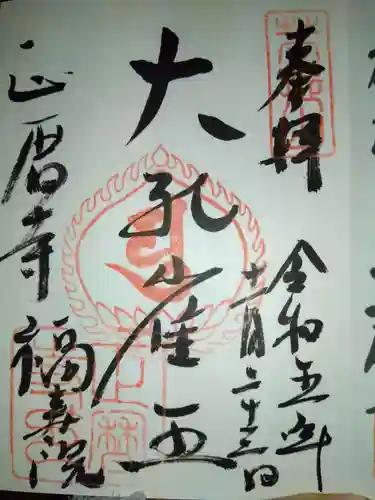 奉拝
令和五年
十一月二十三日
大孔雀王
正暦寺
福寿院